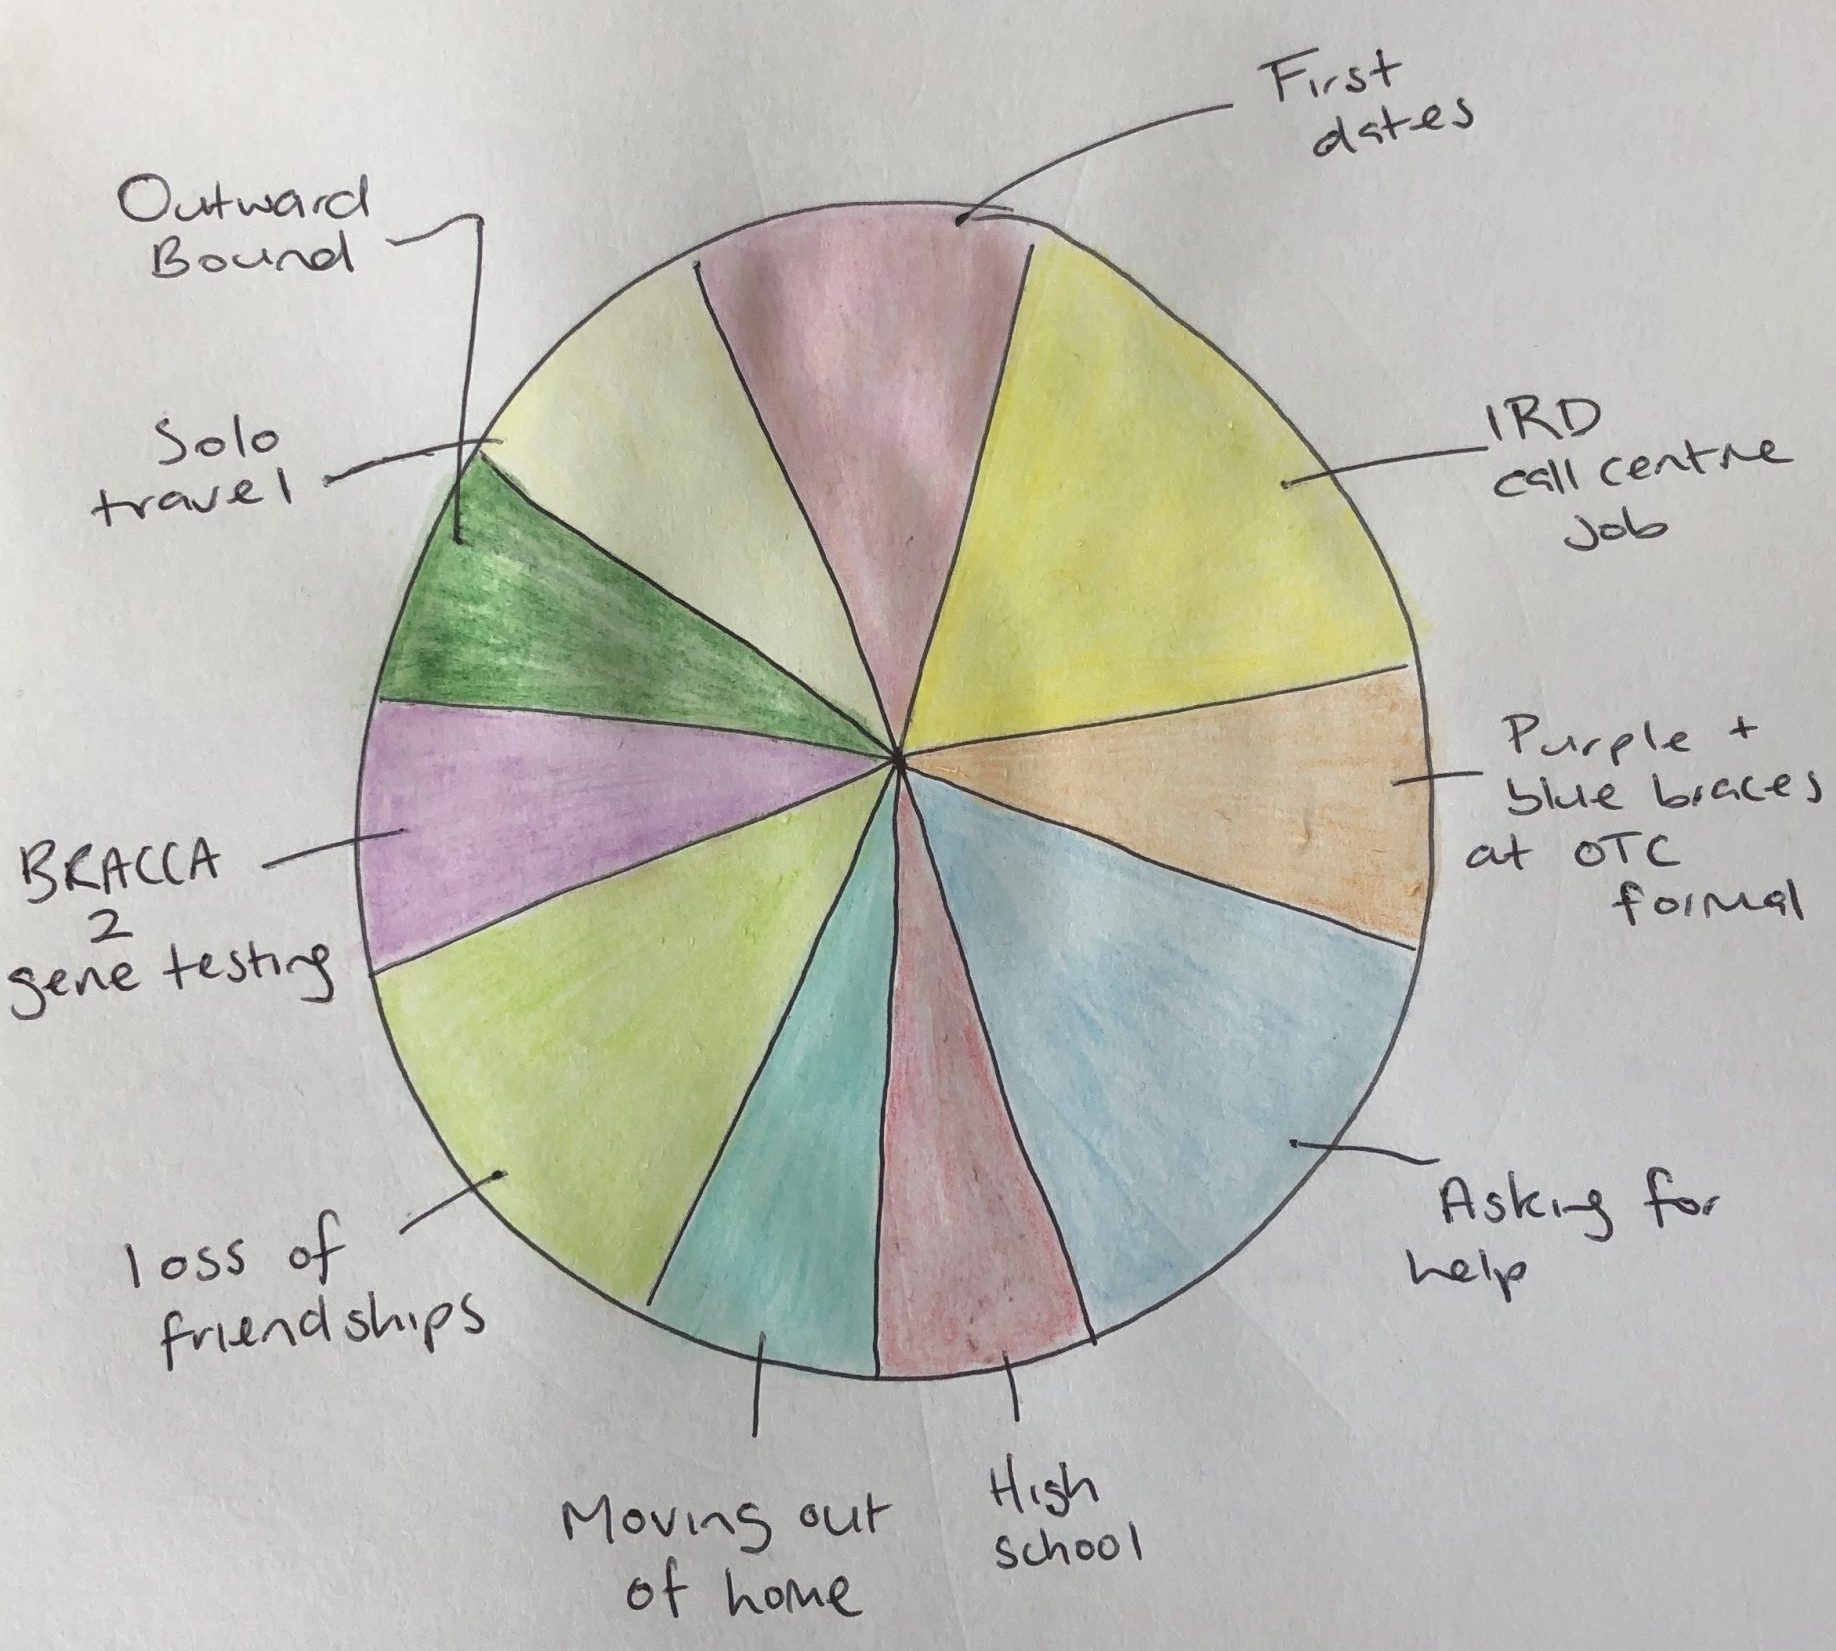 First
dates
IRD
call centre
job
Purple +
blue braces
at OTC
formal
Asking for
help
High
school
Moving out
of home
loss of
friendships
BRACCA
2
gene testing
Solo
travel
Outward
Bound